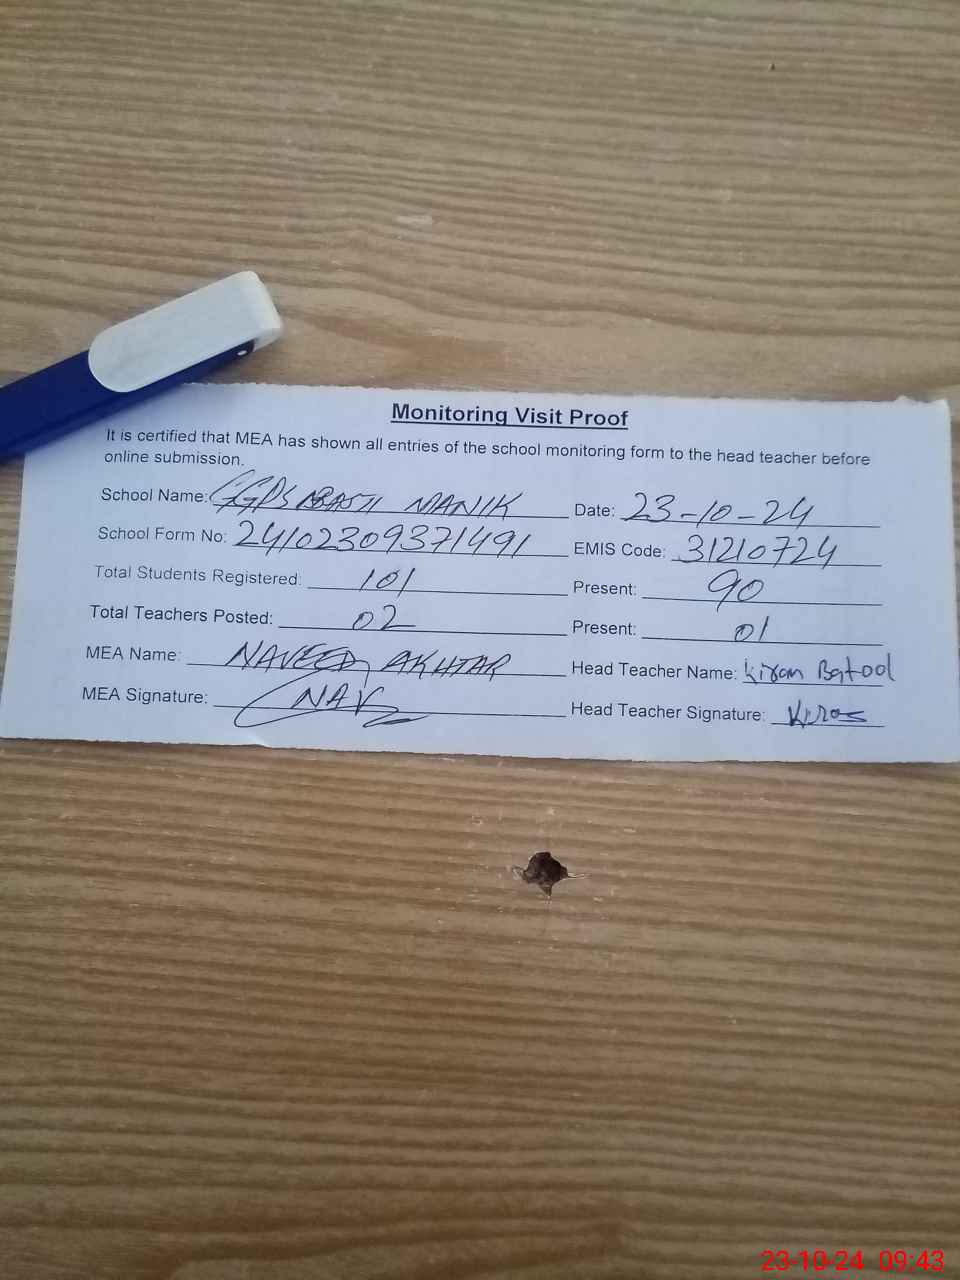 Monitoring Visit Proof
It is certified that MEA has shown all entries of the school monitoring form to the head teacher before
online submission.
School Name: GGPS BASTI MANIK Date: 23-10-24
School Form No: 24102309371491 EMIS Code: 31210724
Total Students Registered: 101 Present: 90
Total Teachers Posted: 02 Present: 01
MEA Name: NAVEED AKHTAR Head Teacher Name: Kiran Batool
MEA Signature: NAV Head Teacher Signature: Kiran
23-10-24 09:43